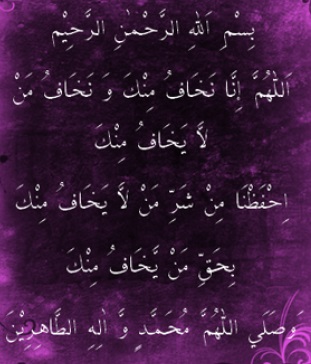 بِسْمِ اَللهِ الرَّحْمٰنِ الرَّحِيْمِ
اَللّٰهُمَّ إِنَّا نَخَافُ مِنْكَ وَ نَخَافُ مَنْ
لاَّ يَخَافُ مِنْكَ
اِحْفَظْنَا مِنْ شَرِّ مَنْ لاَّ يَخَافُ مِنْكَ
بِحَقِّ مَنْ يَّخَافُ مِنْكَ
وَصَلَي اللّٰهُمَّ مُحَمَّدٍ وَّ اٰلِهِ الطَّاهِرِيْنَ